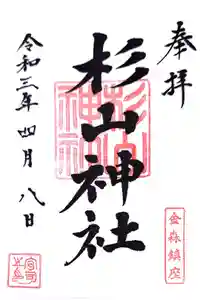 奉拝
杉山神社
令和三年四月八日
杉山
神社
金森鎮座